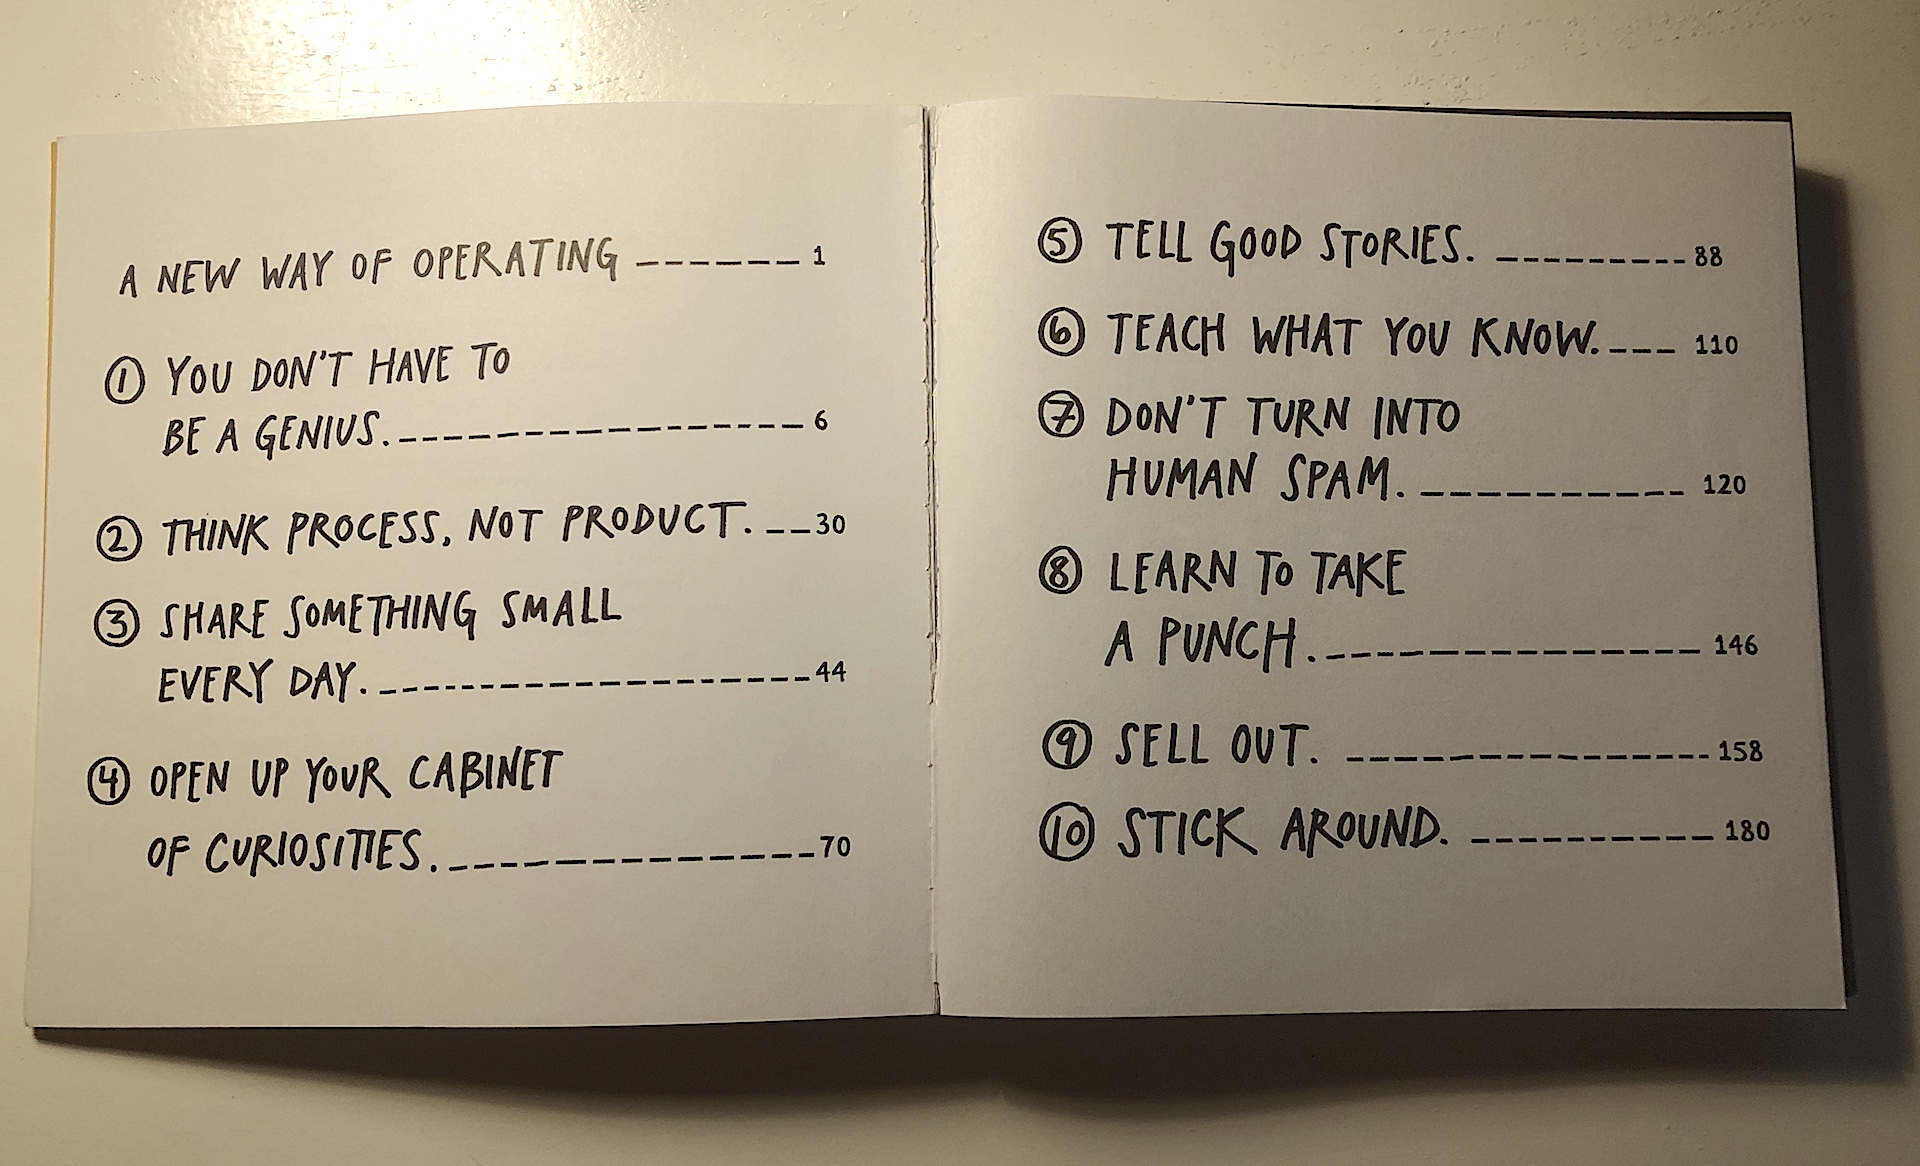 A NEW WAY OF OPERATING ------ 1
① YOU DON'T HAVE TO
BE A GENIUS. ----------------- 6
② THINK PROCESS, NOT PRODUCT. -- 30
③ SHARE SOMETHING SMALL
EVERY DAY. ------------------- 44
④ OPEN UP YOUR CABINET
OF CURIOSITIES. -------------- 70
⑤ TELL GOOD STORIES. --------- 88
⑥ TEACH WHAT YOU KNOW. --- 110
⑦ DON'T TURN INTO
HUMAN SPAM. ---------- 120
⑧ LEARN TO TAKE
A PUNCH. ---------------- 146
⑨ SELL OUT. -------------- 158
⑩ STICK AROUND. ---------- 180